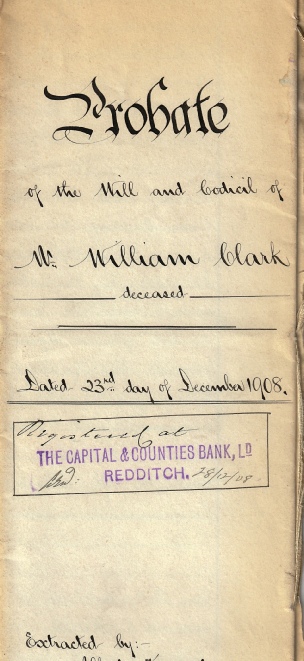 Probate
of the Will and Codicil of
Mr. William Clark
deceased
Dated 23rd day of December 1908.
Registered at
THE CAPITAL & COUNTIES BANK, LD
REDDITCH. 28/12/08
Extracted by:-